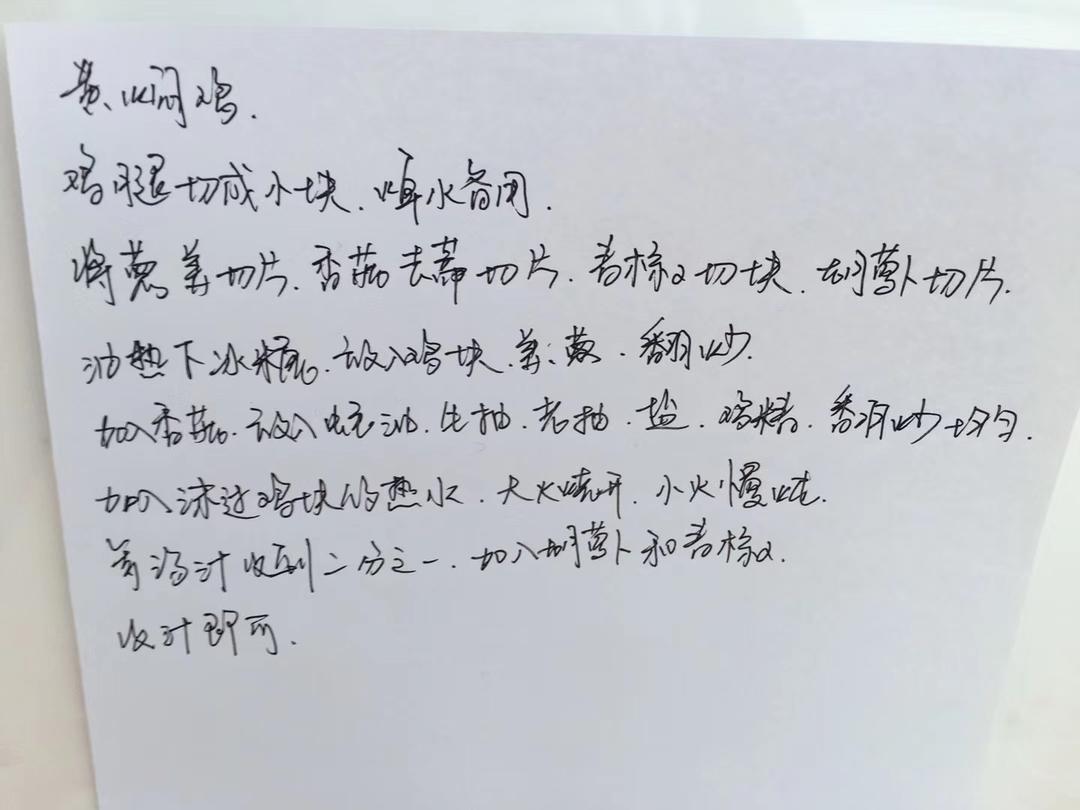 黄焖鸡.
鸡腿切成小块、焯水备用.
将葱姜切片、香菇去蒂切片、青椒切块、胡萝卜切片.
油热下冰糖、放入鸡块、姜、葱、翻炒.
加入香菇、放入蚝油、生抽、老抽、盐、鸡精、翻炒均匀.
加入没过鸡块的热水、大火烧开、小火慢炖.
等汤汁收到二分之一、加入胡萝卜和青椒.
收汁即可.